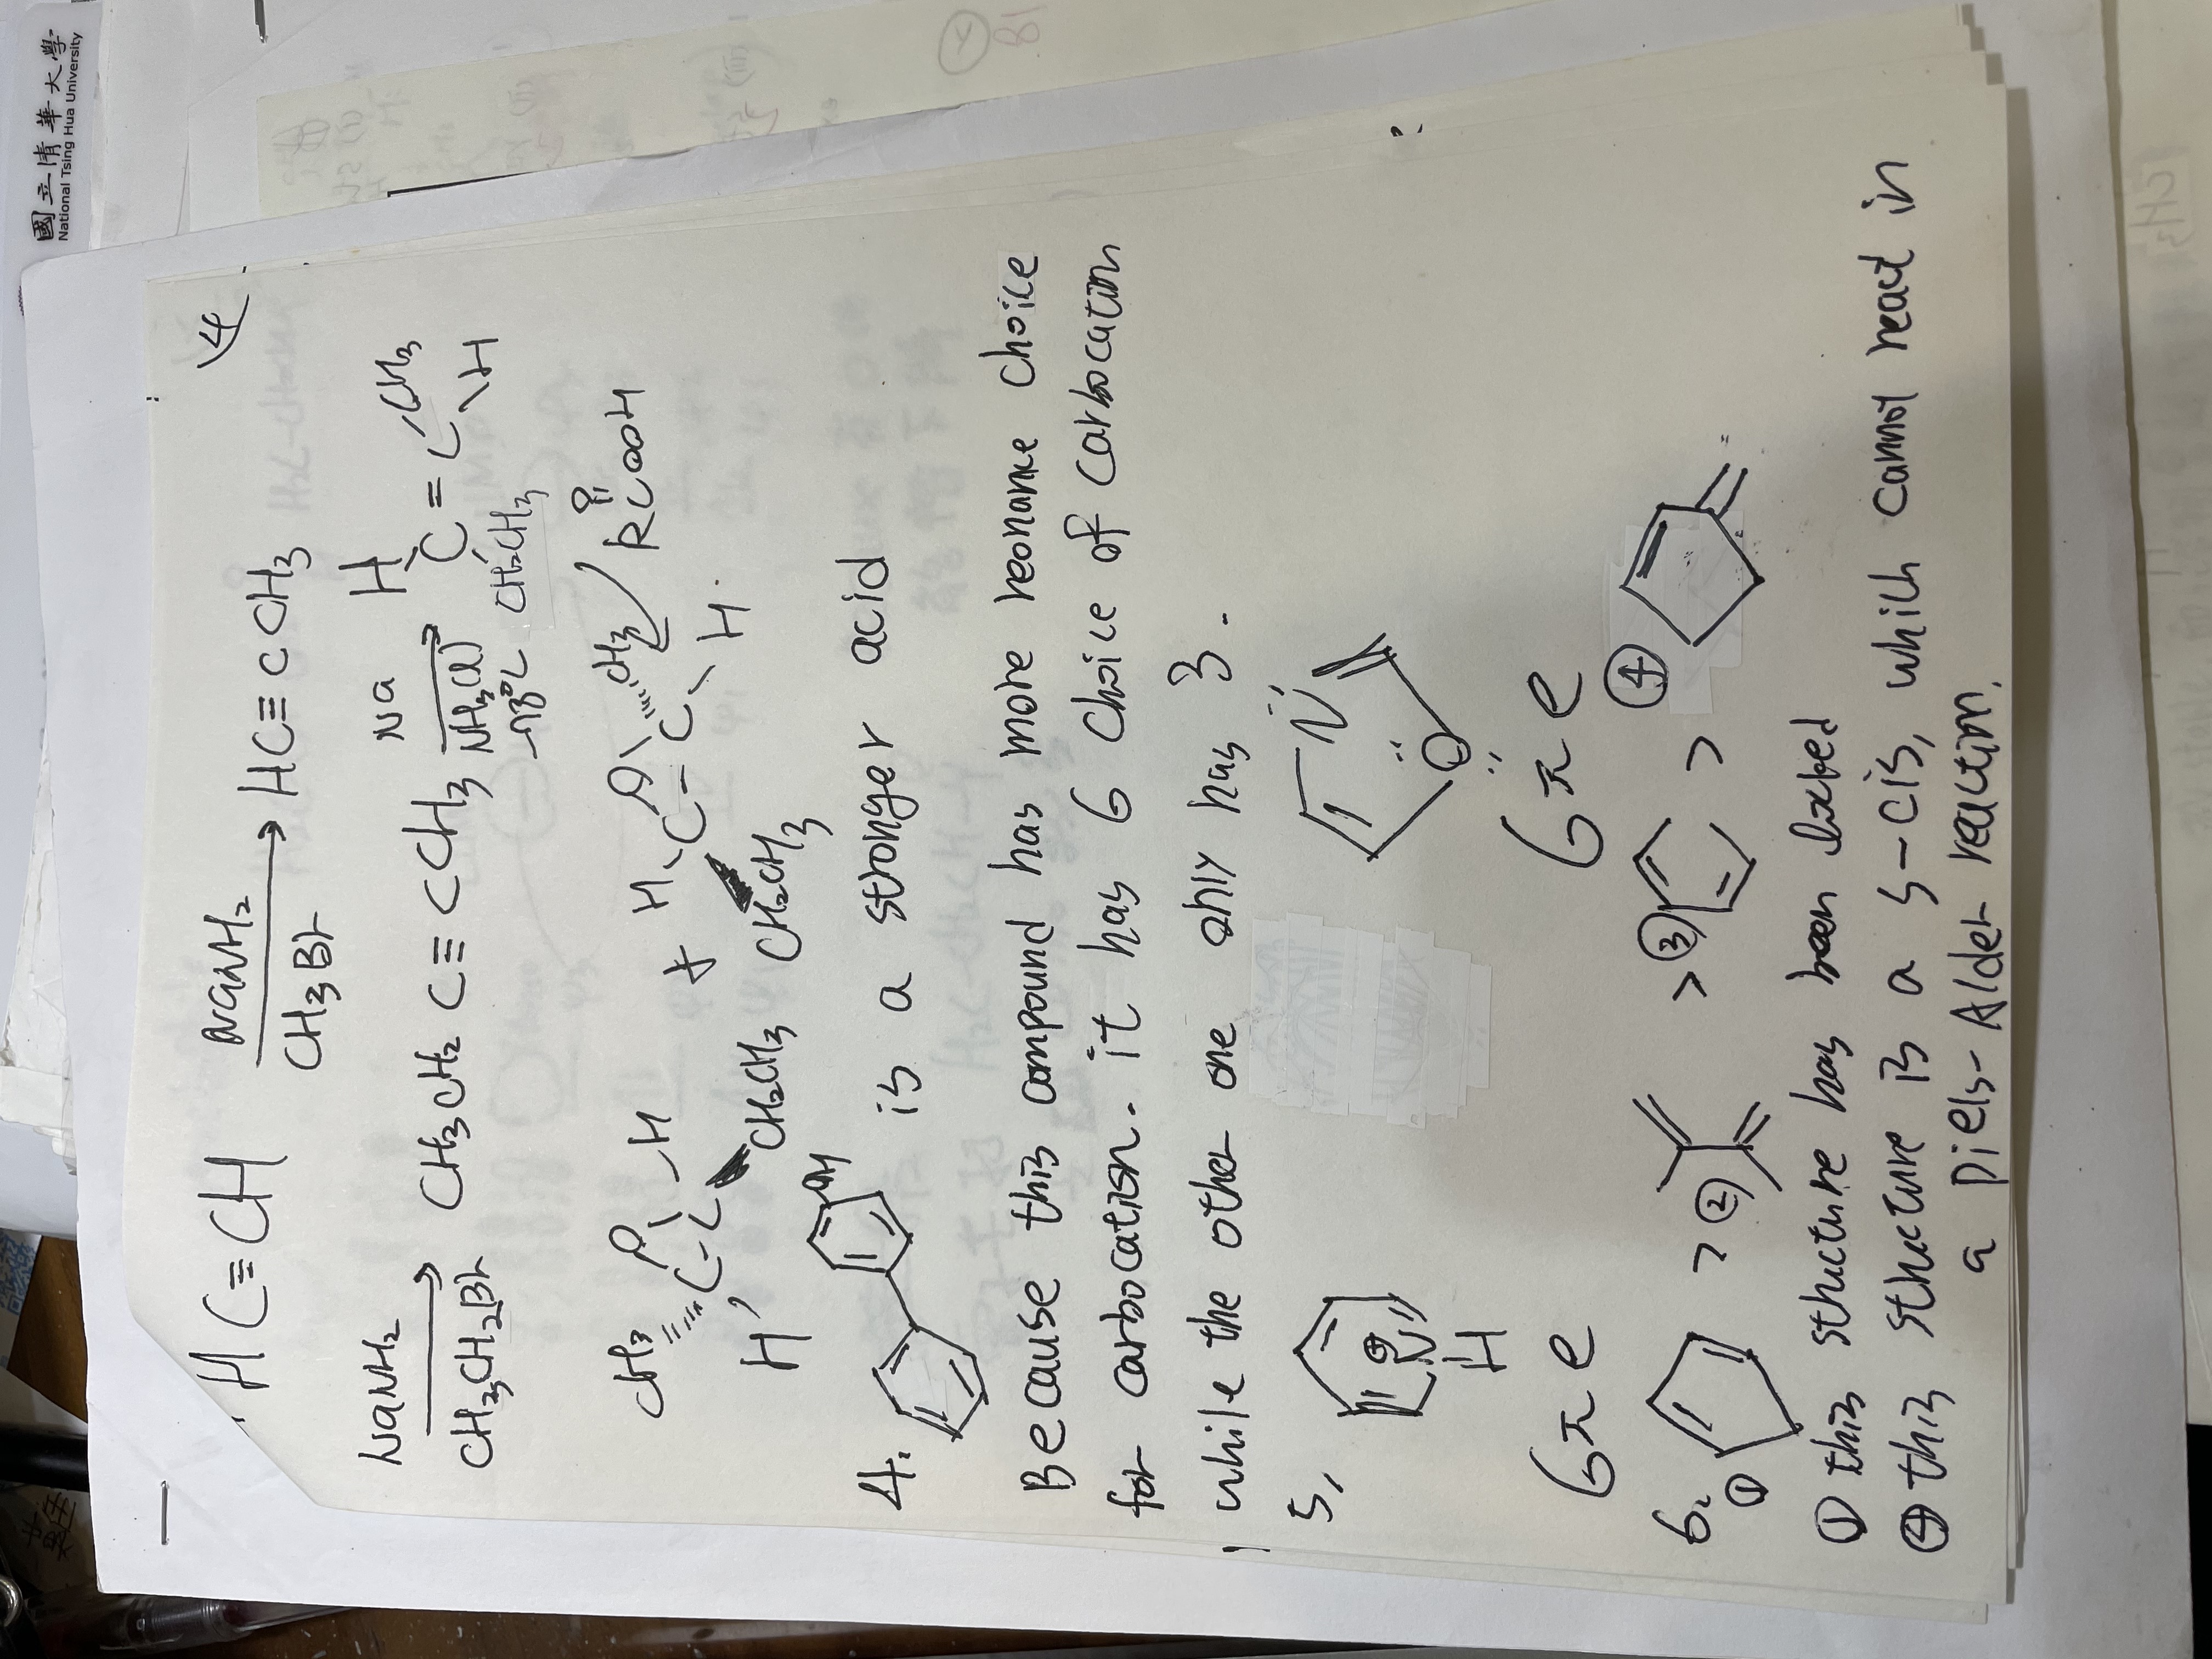 國立清華大學
National Tsing Hua University
4
HC≡CH NaNH₂ CH₃Br → HC≡CCH₃
NaNH₂ CH₃CH₂Br → CH₃CH₂C≡CCH₃ Na NH₃(l) -78°C → H C=C CH₃ H CH₂CH₃
CH₃ O H C-C H CH₂CH₃ + H O CH₃ C-C H CH₂CH₃ RCOOH O
4. OH is a stronger acid
Because this compound has more reonance choice
for carbocation. it has 6 choice of carbocation
, while the other one only has 3.
5,
⊕ N H N O
6πe 6πe
6. ① > ② > ③ > ④
① this structure has been locked
④ this structure is a s-cis, which cannot react in
a Diels-Alder reaction.